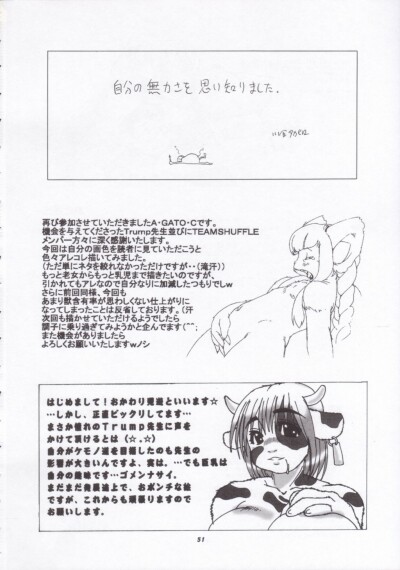 自分の無力さを思い知りました.
再び参加させていただきましたA・GATO・Cです。
機会を与えてくださったTrump先生並びにTEAMSHUFFLE
メンバー方々に深く感謝いたします。
今回は自分の画色を読者に見ていただこうと
色々アレコレ描いてみました。
(ただ単にネタを絞れなかっただけですが・・(滝汗))
もっと老女からもっと乳児まで描きたいのですが、
引かれてもアレなので自分なりに加減したつもりでしw
さらに前回同様、今回も
あまり獣含有率が思わしくない仕上がりに
なってしまったことは反省しております。(汗
次回も描かせていただけるようでしたら
調子に乗り過ぎてみようかと企んでます(^^;
また機会がありましたら
よろしくお願いいたしますwノシ
はじめまして!おかわり飛進といいます☆
…しかし、正直ビックリしてます…
まさか憧れのTrump先生に声を
かけて頂けるとは(☆.☆)
自分がケモノ道を目指したのも先生の
影響が大きいんですよ、実は。…でも巨乳は
自分の趣味です…ゴメンナサイ。
まだまだ発展途上で、おポンチな絵
ですが、これからも頑張りますので
お願いします。
51